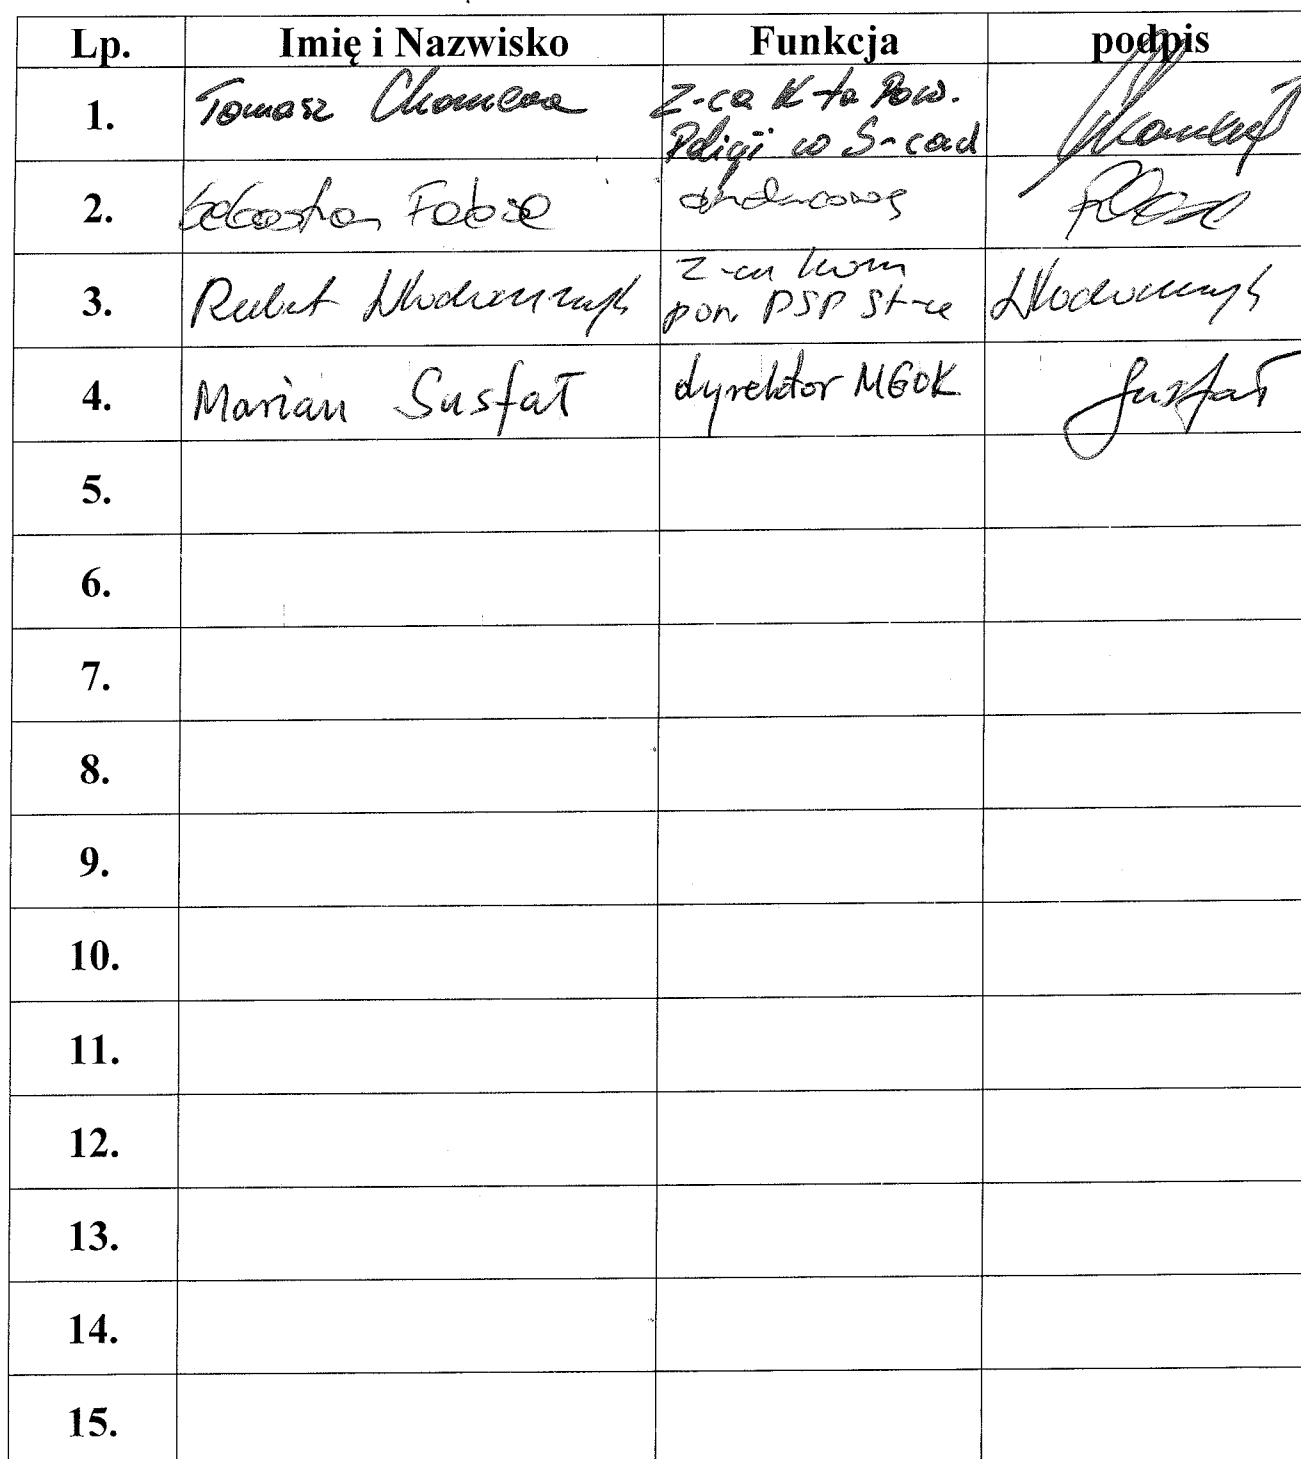 Lp. Imię i Nazwisko Funkcja podpis
1. Tomasz Z-ca K-ta Pow.
Policji w S-cach
2. Sebastian
3. Robert Włodarczyk z-ca kom
pow. PSP St-ce Włodarczyk
4. Marian Susfał dyrektor MGOK Susfał
5.
6.
7.
8.
9.
10.
11.
12.
13.
14.
15.